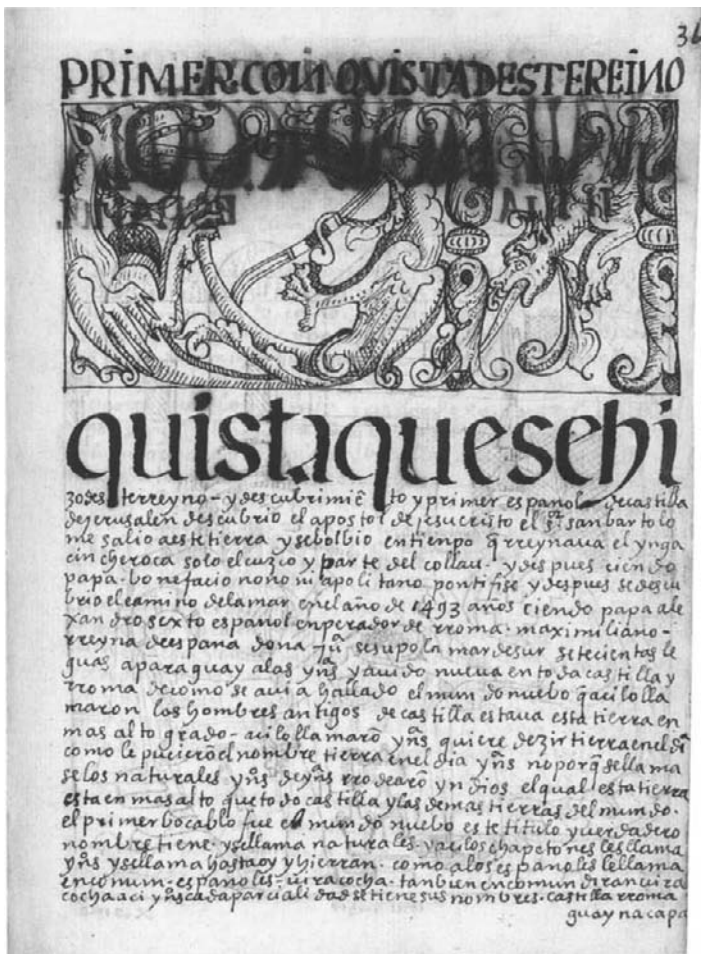 36
PRIMER. CONQVISTA DESTE REINO
quista que se hi
zo des terreyno - y descubrimiē to y primer español de castilla
de jerusalen descubrio el apostol de jesucristo el s.r san bartolo
me salio a este tierra y se bolbio en tienpo q̄ rreynaua el ynga
cin che roca solo el cuzco y parte del collau - y despues ciendo
papa - bonefacio nono napolitano pontifise y despues se descu
brio el camino de la mar en el año de 1493 años ciendo papa ale
xandro sexto español enperador de rroma - maximiliano -
rreyna de espana dona - ju.a se supo la mar de sur setecientas le
guas a paraguay a las yn̄s y auido nueua en toda castilla y
rroma de como se auia hallado el mundo nuebo q̄ aci lo lla
maron los hombres antigos de castilla estaua esta tierra en
mas alto grado - aci lo llamarō yn̄s quiere dezir tierra en el día
como le pucierō el nombre tierra en el dia yn̄s no porq̄ se llama
se los naturales yn̄s de yn̄s rrodearō yndios el qual esta tierra
esta en mas alto que todo castilla y las demas tierras del mundo -
el primer bocablo fue el mundo nuebo este titulo y uerdadero
nombre tiene - y se llama naturales - y a los chapetones les llama
yn̄s y se llama hasta oy y hierran - como a los españoles le llama
en comun - españoles - uiracocha - tanbien en comun diran uira
cocha aci yn̄s cada parcialidad se tiene sus nombres - castilla rroma
guaynacapa